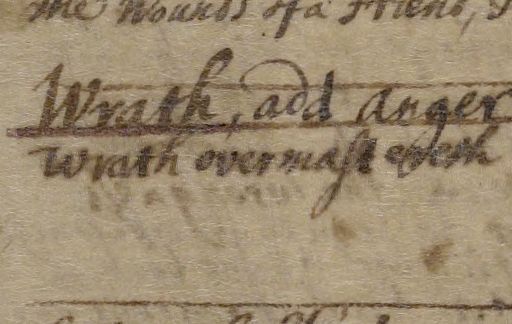 the wounds of a Friend,
Wrath, add anger
wrath overmastereth